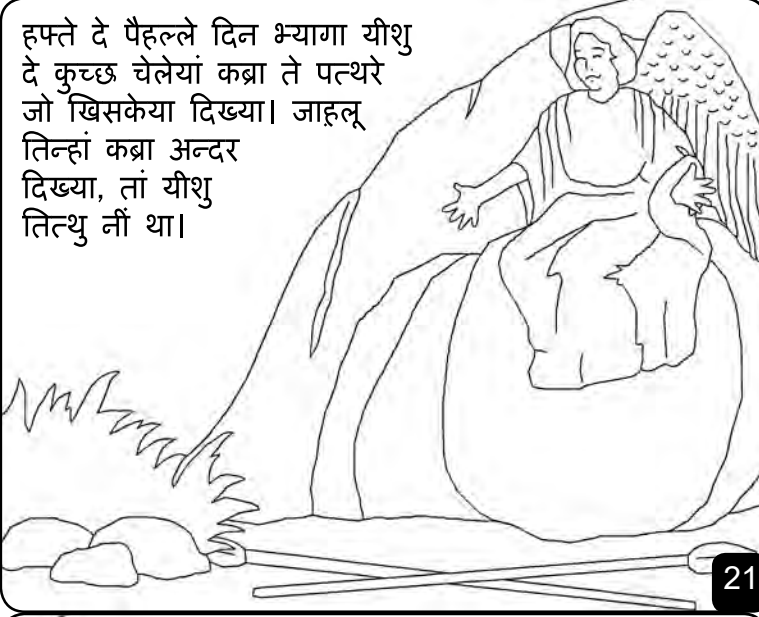 हफ्ते दे पैहल्ले दिन भ्यागा यीशु
दे कुच्छ चेलेयां कब्रा ते पत्थरे
जो खिसकेया दिख्या। जाह़लू
तिन्हां कब्रा अन्दर
दिख्या, तां यीशु
तित्थु नीं था।
21